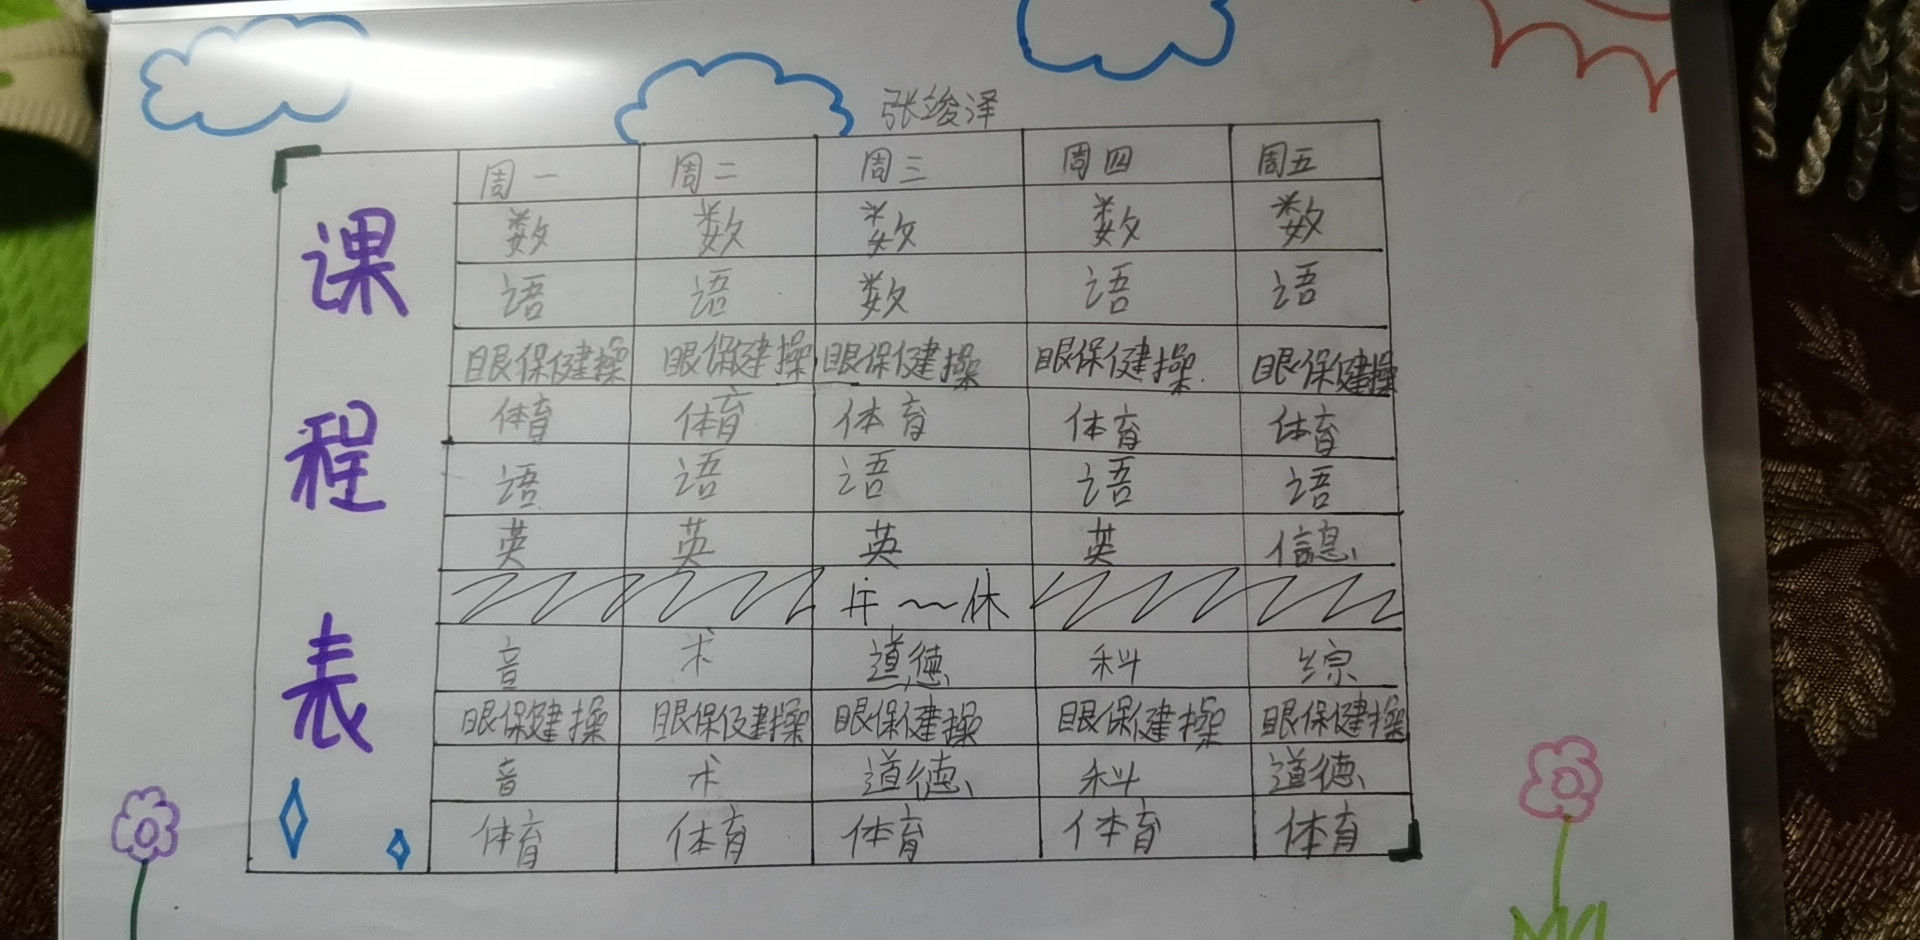 张竣泽
课程表
周一 周二 周三 周四 周五
数 数 数 数 数
语 语 数 语 语
眼保健操 眼保健操 眼保健操 眼保健操 眼保健操
体育 体育 体育 体育 体育
语 语 语 语 语
英 英 英 英 信息
午～休
音 术 道德 科 综
眼保健操 眼保健操 眼保健操 眼保健操 眼保健操
音 术 道德 科 道德
体育 体育 体育 体育 体育